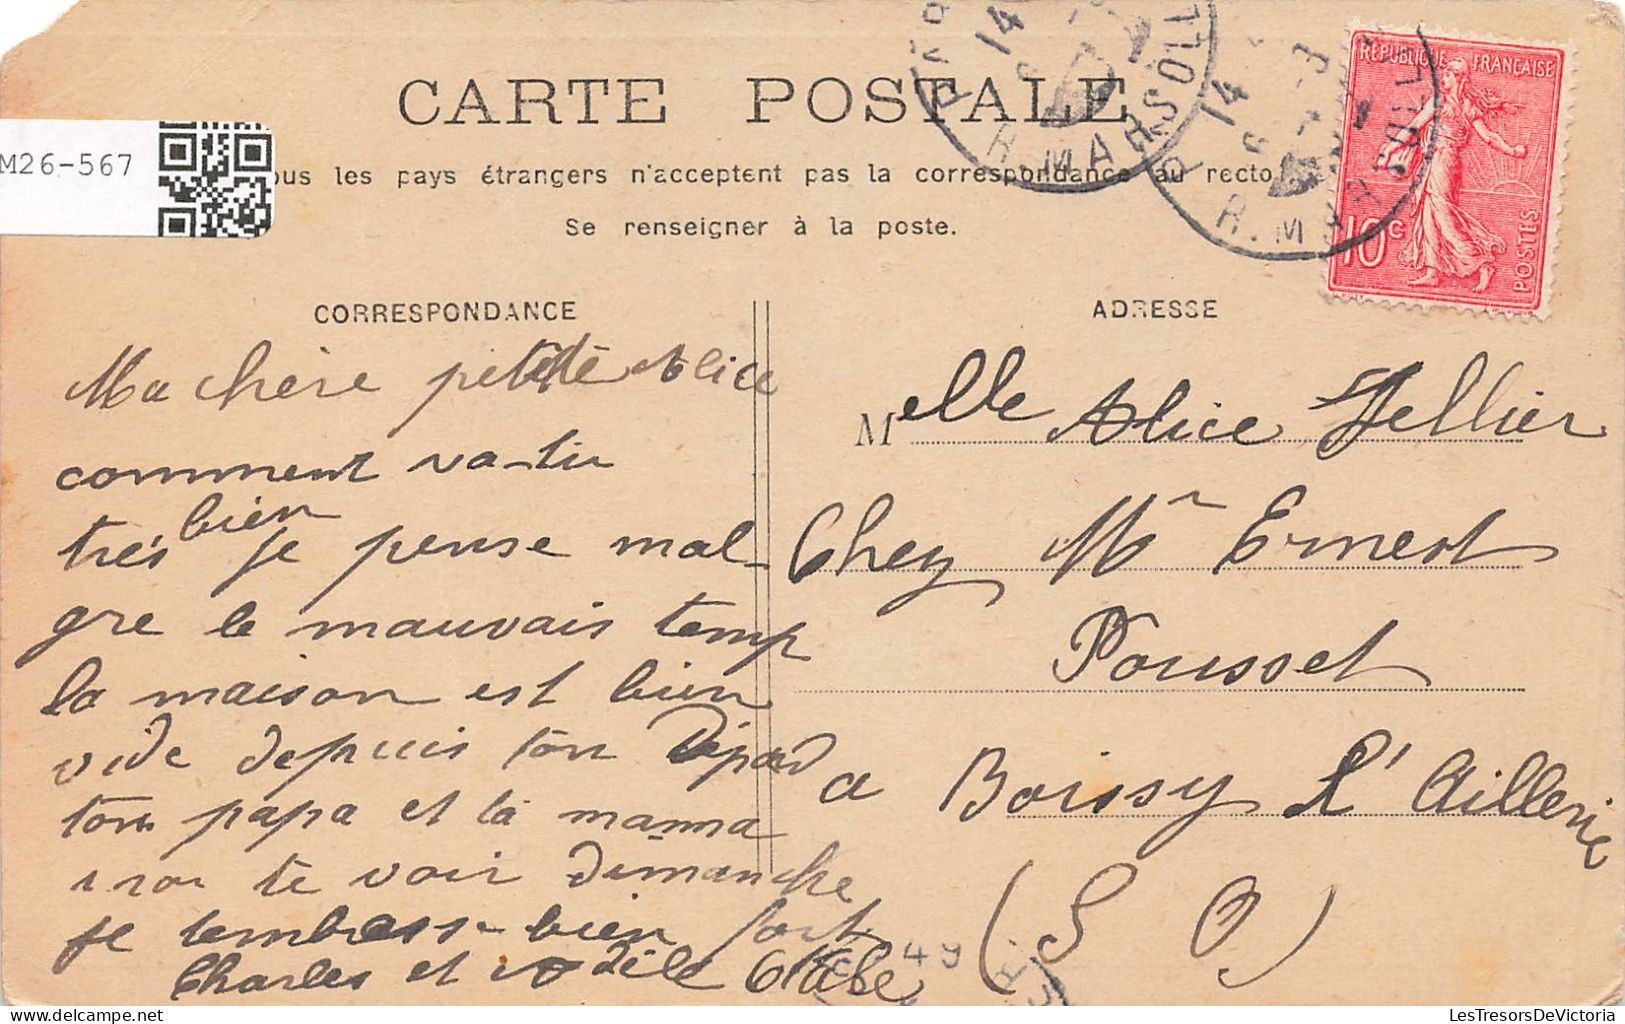 CARTE POSTALE
M26-567
ous les pays étrangers n'acceptent pas la correspondance au recto
Se renseigner à la poste.
REPUBLIQUE FRANÇAISE
10c
POSTES
14
R. MARSOLL
14
R. MARSOLL
CORRESPONDANCE
Ma chère petite Alice
comment va-tu
très bien je pense mal-
gre le mauvais temp
la maison est bien
vide depuis ton départ
ton papa et ta manma
iron te voir dimanche
je tembrass bien fort
Charles et Odile
ADRESSE
Melle Alice Tellier
Chez Mr Ernest
Pousset
a Boissy L'Aillerie
(S O)
LesTresorsDeVictoria